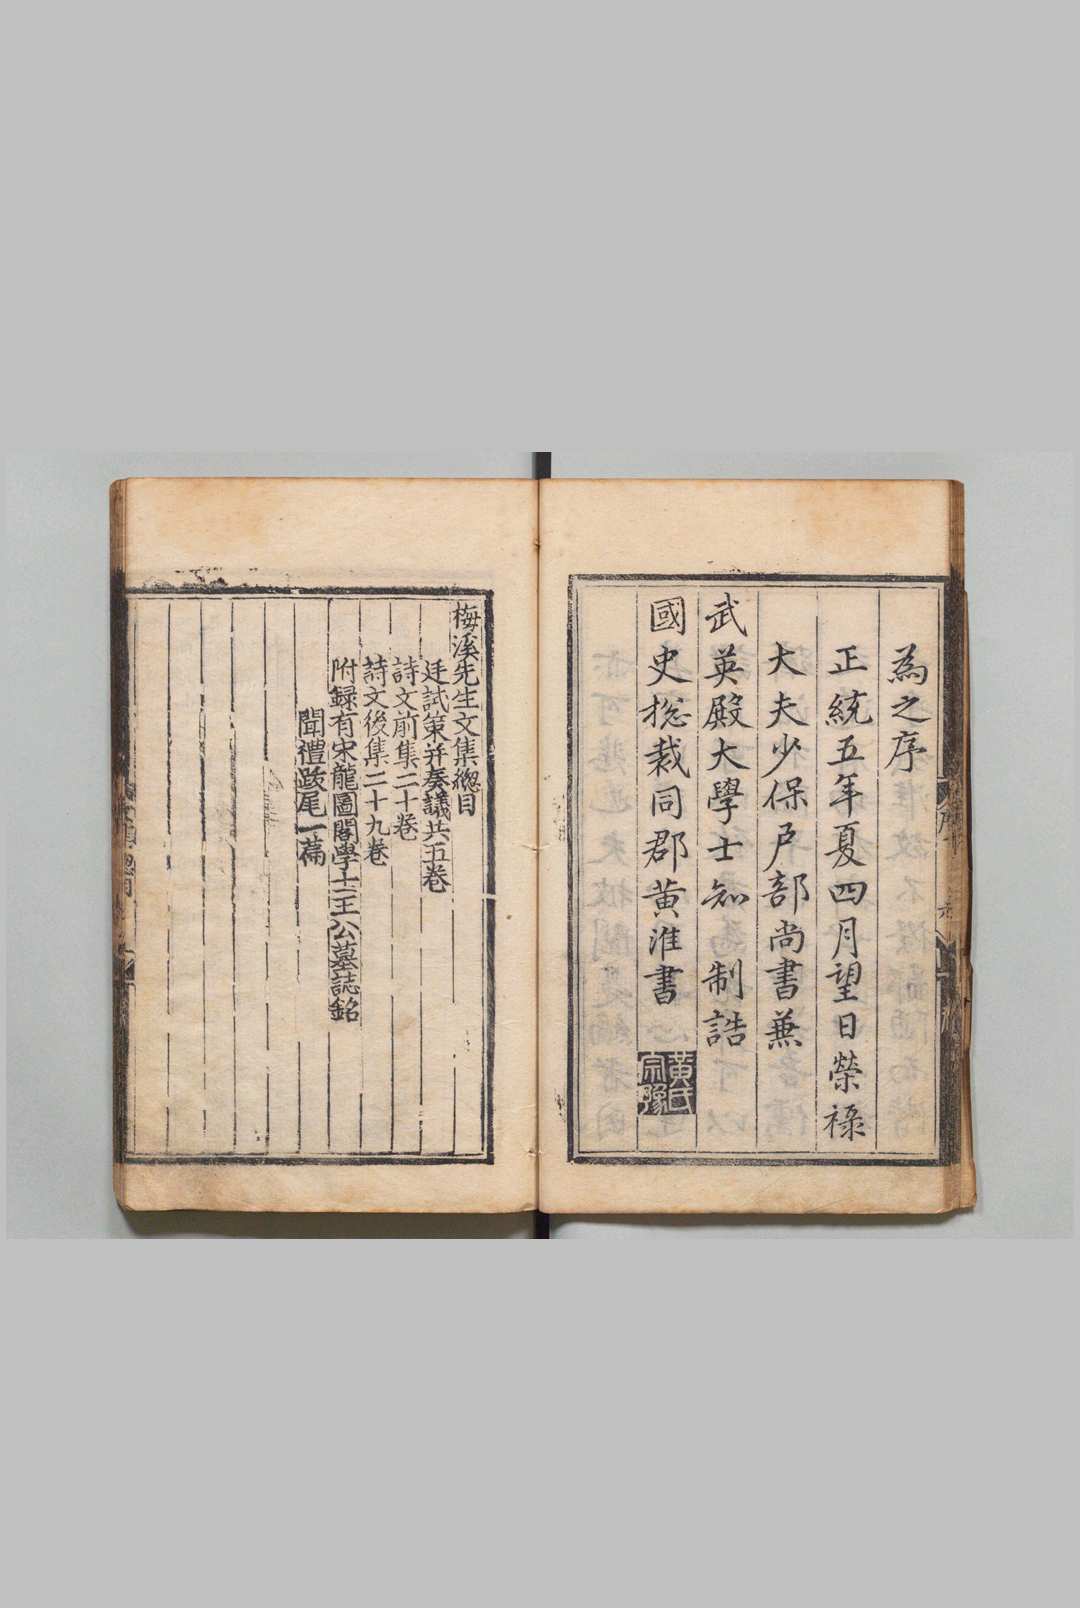 為之序
正統五年夏四月望日榮祿
大夫少保戶部尚書兼
武英殿大學士知制誥
國史總裁同郡黃淮書
黃氏宗豫
梅溪先生文集總目
廷試策并奏議共五卷
詩文前集二十卷
詩文後集二十九卷
附録有宋龍圖閣學士王公墓誌銘
聞禮跋尾一篇